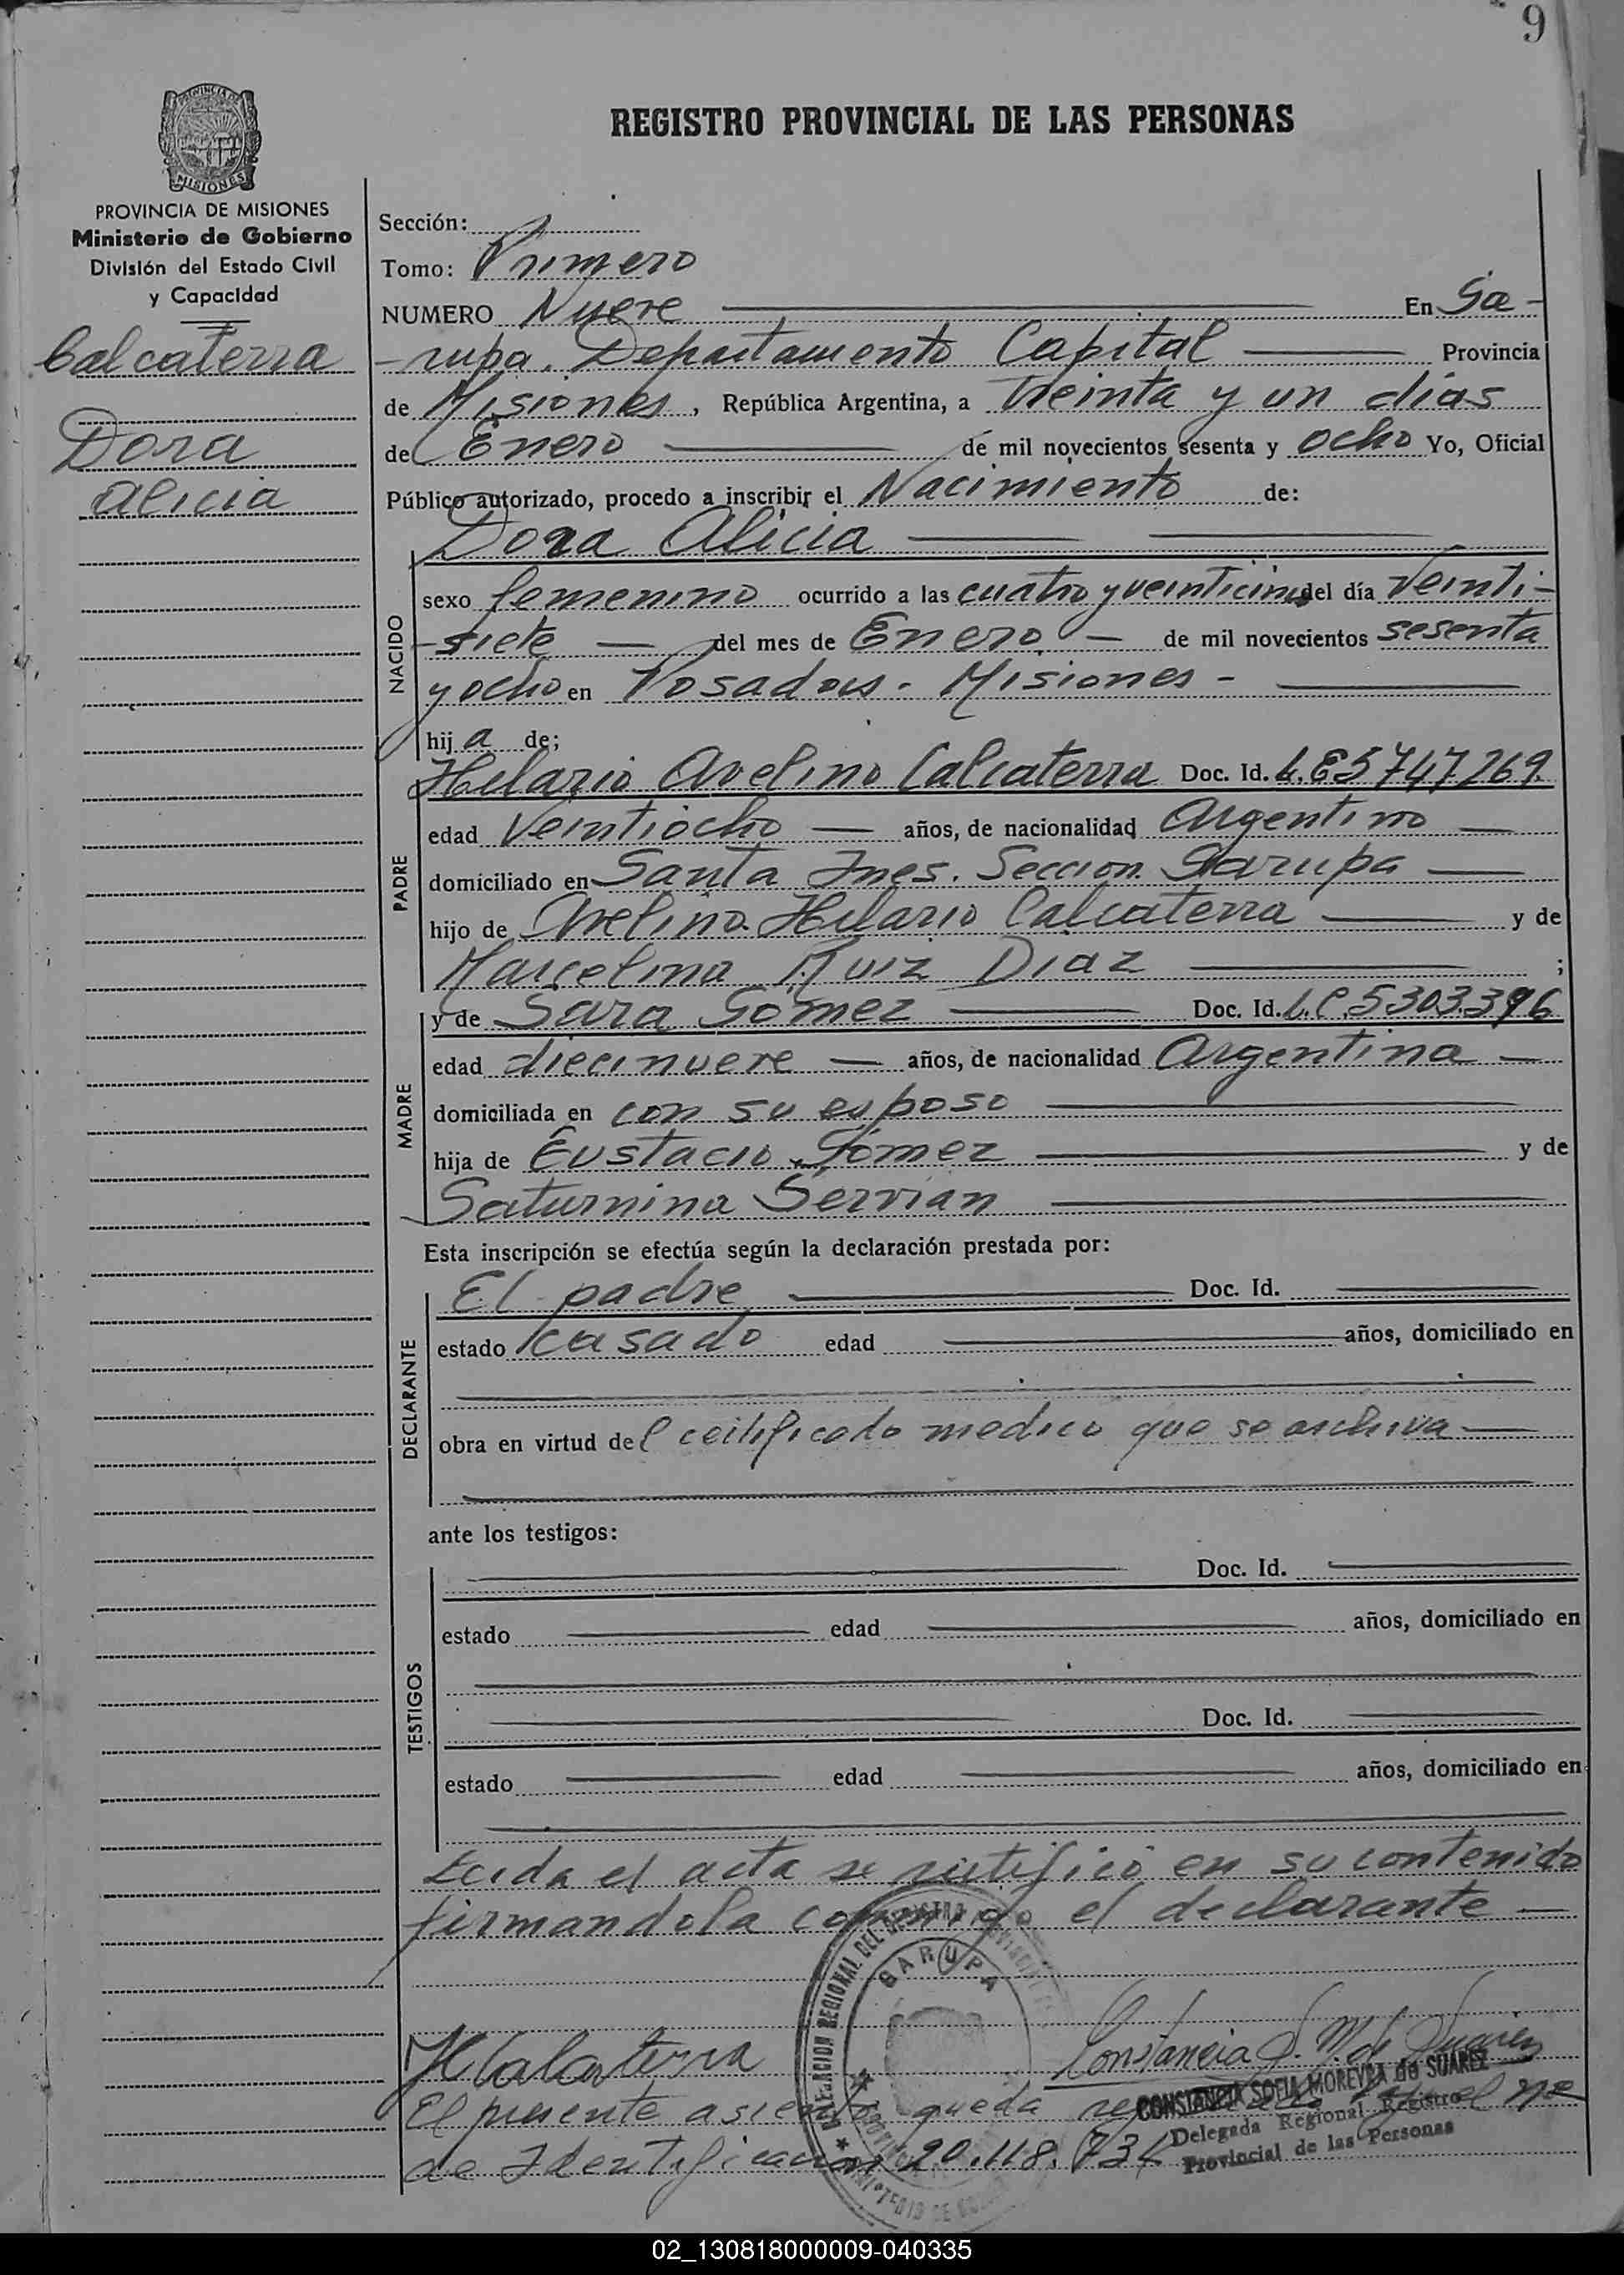 9
REGISTRO PROVINCIAL DE LAS PERSONAS
PROVINCIA DE MISIONES
Ministerio de Gobierno
División del Estado Civil
y Capacidad
Calcaterra
Dora
Alicia
Sección:
Tomo: Primero
NUMERO Nueve En Ga-
-rupa. Departamento Capital Provincia
de Misiones, República Argentina, a Treinta y un días
de Enero de mil novecientos sesenta y ocho Yo, Oficial
Público autorizado, procedo a inscribir el Nacimiento de:
Dora Alicia
NACIDO
sexo femenino ocurrido a las cuatro y veinticinco del día Veinti-
-siete del mes de Enero de mil novecientos sesenta
y ocho en Posadas - Misiones -
hij a de;
PADRE
Hilario Avelino Calcaterra Doc. Id. L.E 5747269.
edad Veintiocho años, de nacionalidad Argentino
domiciliado en Santa Ines. Seccion. Garupa
hijo de Avelino Hilario Calcaterra y de
Marcelina Ruiz Diaz ;
MADRE
y de Sara Gomez Doc. Id. L.C. 5303.396
edad diecinueve años, de nacionalidad Argentina
domiciliada en con su esposo
hija de Eustacio Gómez y de
Saturnina Servian
Esta inscripción se efectúa según la declaración prestada por:
DECLARANTE
El padre Doc. Id.
estado casado edad años, domiciliado en
obra en virtud del certificado medico que se archiva
ante los testigos:
TESTIGOS
Doc. Id.
estado edad años, domiciliado en
Doc. Id.
estado edad años, domiciliado en
Leida el acta se ratificó en su contenido
firmandola conmigo el declarante
DELEGACION REGIONAL DEL REGISTRO
GARUPA
HCalcaterra
Constancia S. M. de Suarez
CONSTANCIA SOFIA MOREYRA de SUAREZ
Delegada Regional Registro
Provincial de las Personas
El presente asiento queda el nº
de Identificacion 20.118.734
02_130818000009-040335